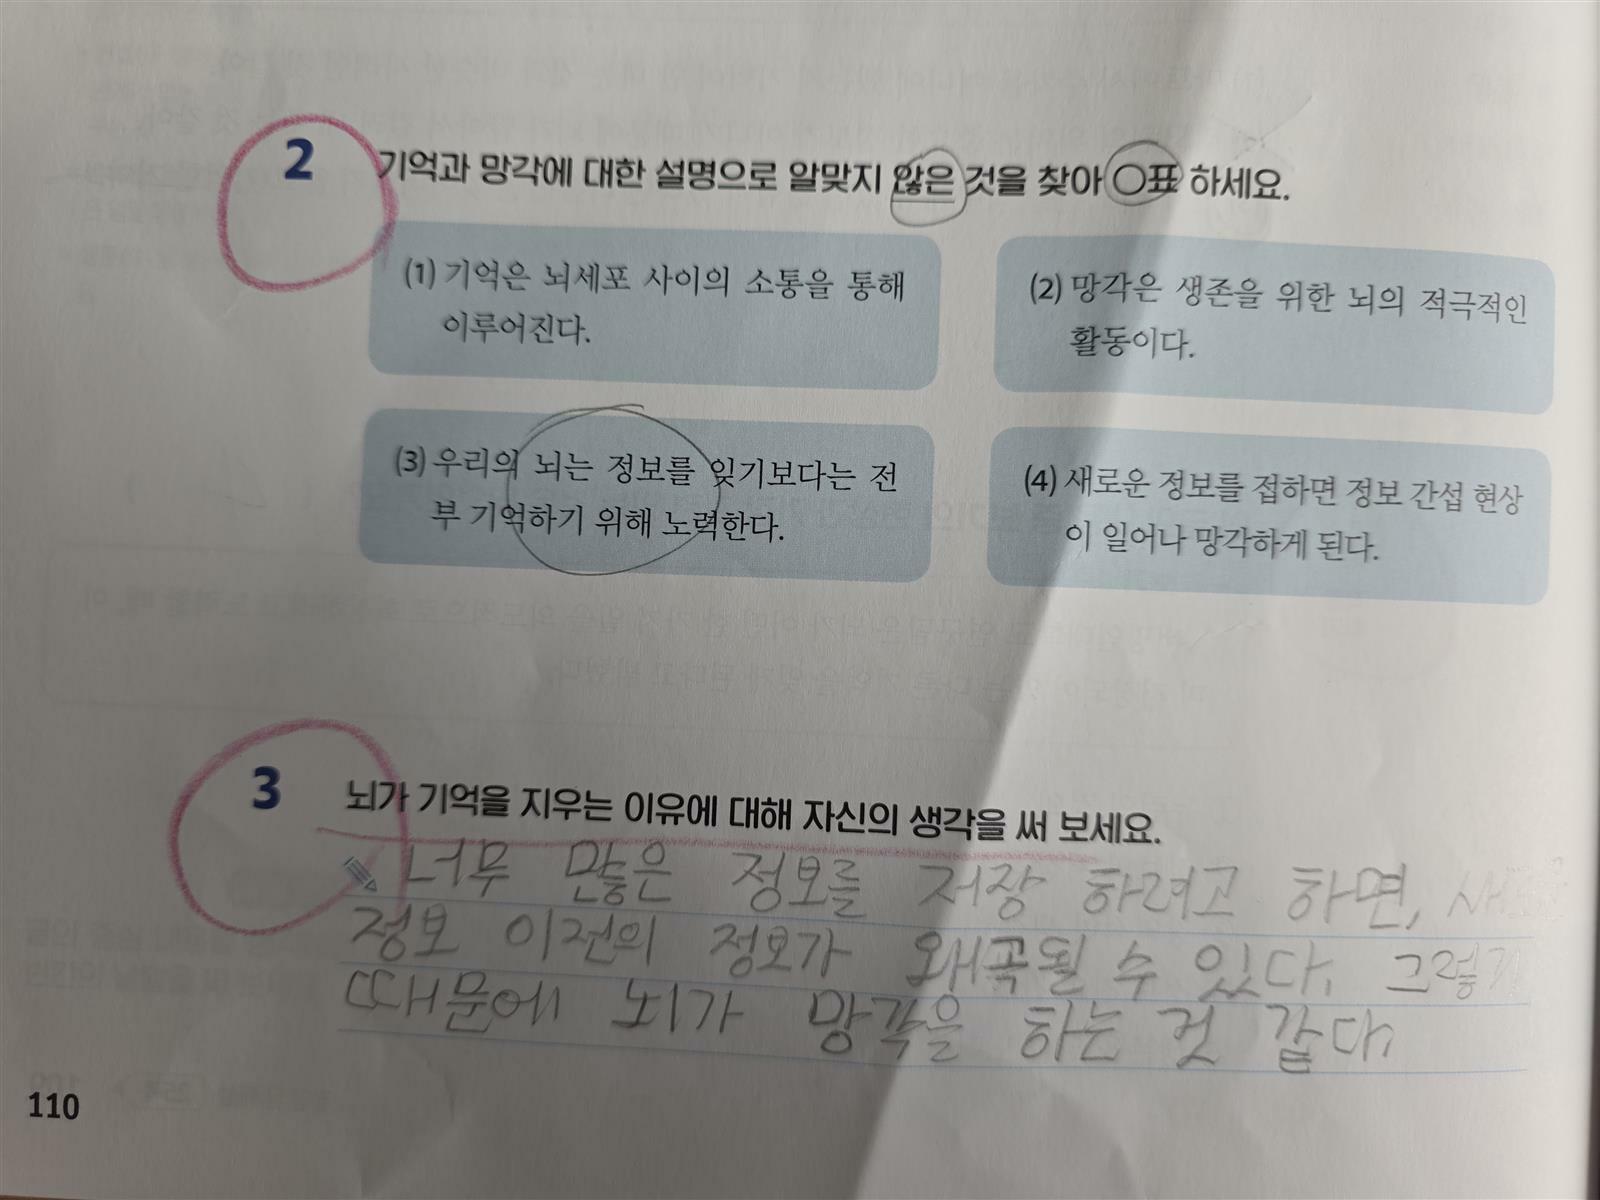 2 기억과 망각에 대한 설명으로 알맞지 않은 것을 찾아 ○표 하세요.
(1) 기억은 뇌세포 사이의 소통을 통해
이루어진다.
(2) 망각은 생존을 위한 뇌의 적극적인
활동이다.
(3) 우리의 뇌는 정보를 잊기보다는 전
부 기억하기 위해 노력한다.
(4) 새로운 정보를 접하면 정보 간섭 현상
이 일어나 망각하게 된다.
3 뇌가 기억을 지우는 이유에 대해 자신의 생각을 써 보세요.
너무 많은 정보를 저장 하려고 하면,
정보 이전의 정보가 왜곡될 수 있다. 그렇기
때문에 뇌가 망각을 하는 것 같다.
110